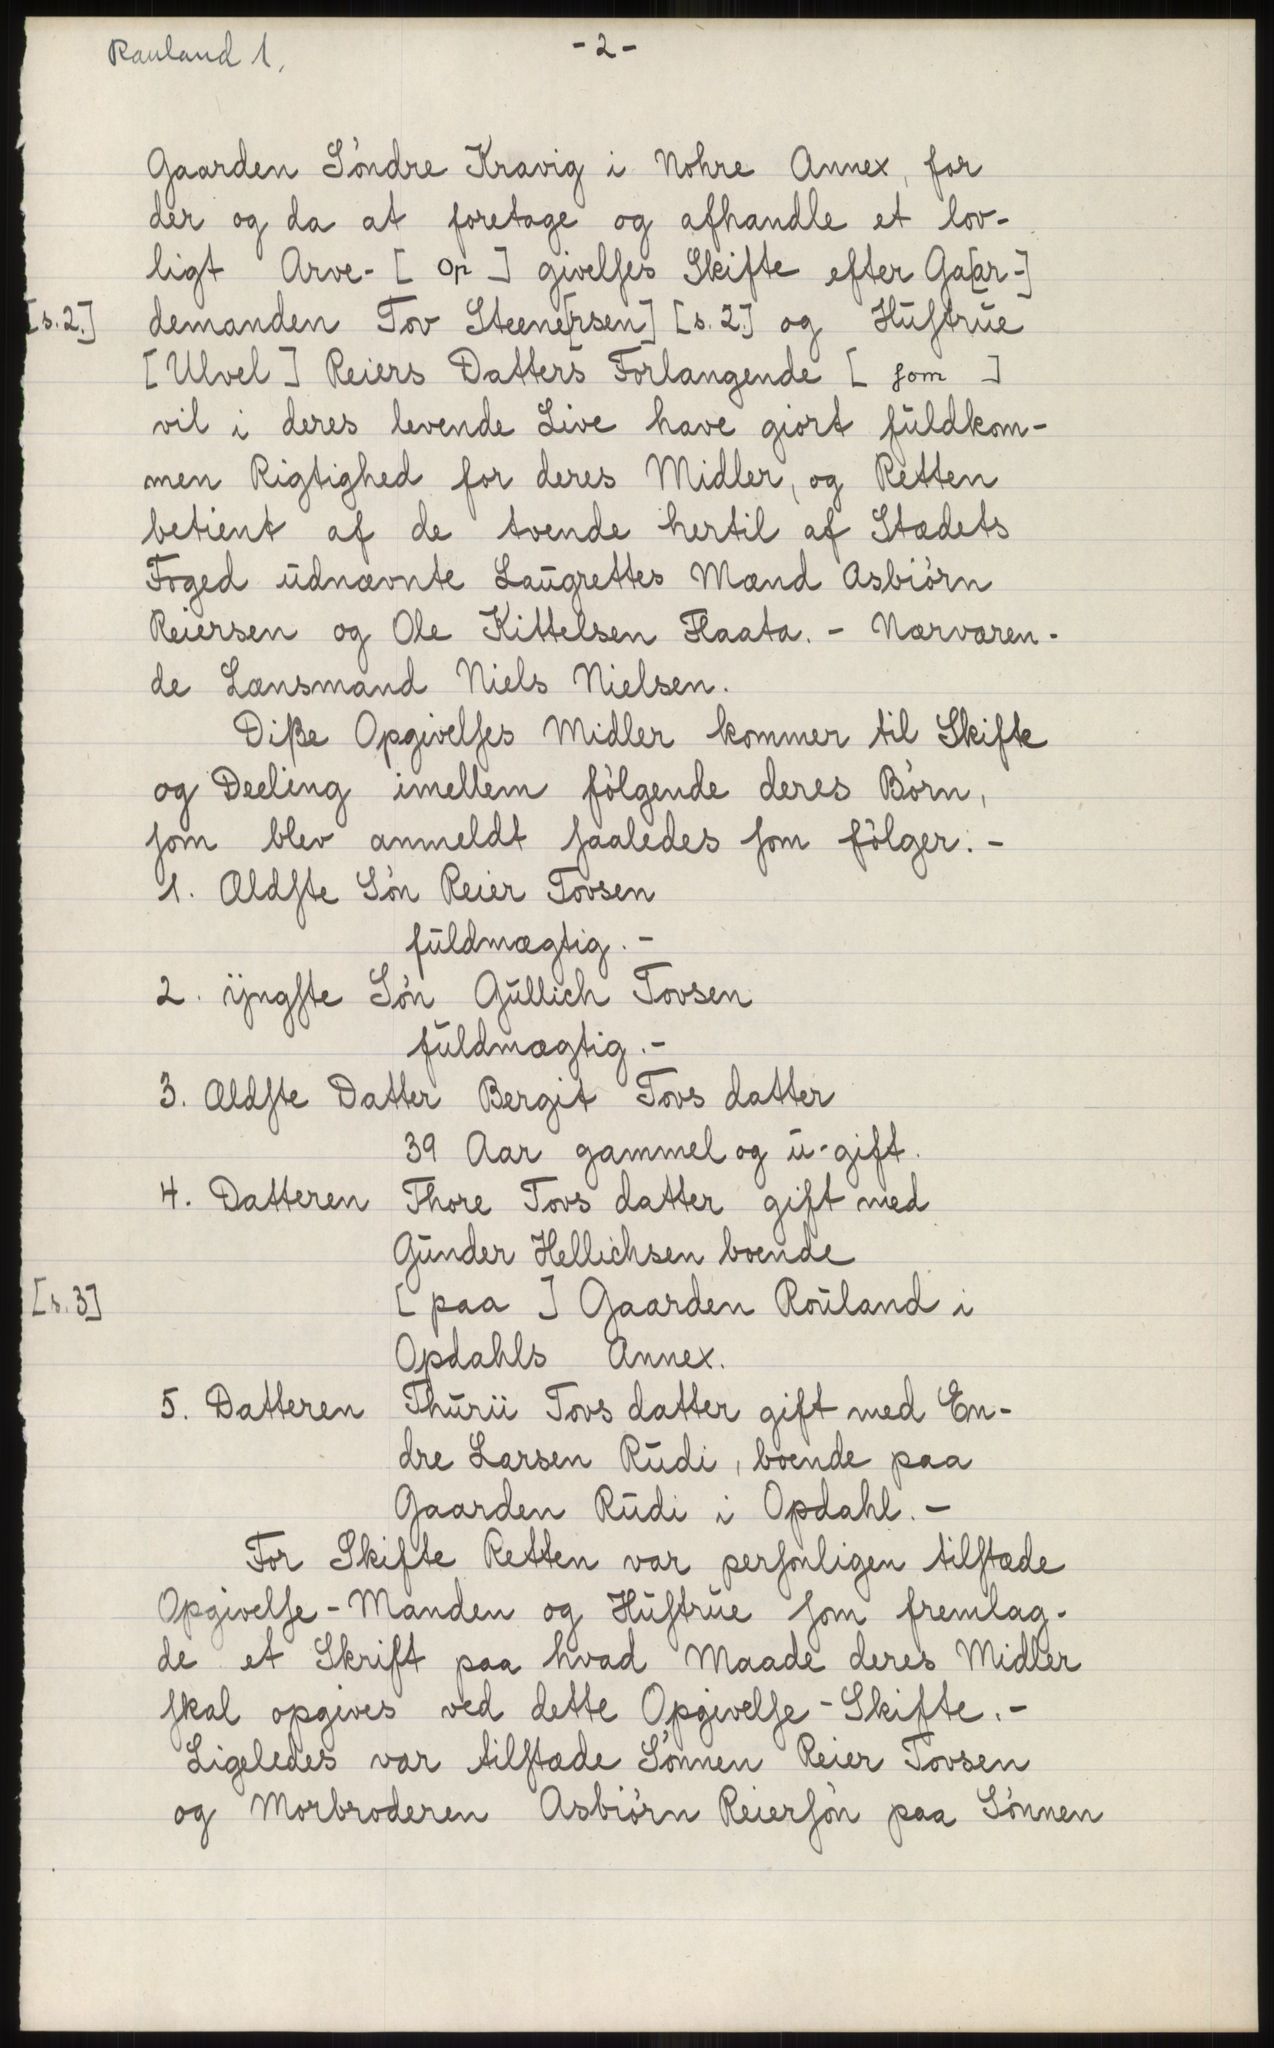 Rauland 1.
- 2 -
Gaarden Söndre Kravig i Nohre Annex, for
der og da at foretage og afhandle et lov-
ligt Arve- [ op ] givelses Skifte efter Ga[ar-]
[s. 2.] demanden Tov Steene[rsen] [s. 2.] og Hustrue
[Ulvel] Reiers Datters Forlangende [ som ]
vil i deres levende Live have giort fuldkom-
men Rigtighed for deres Midler, og Retten
betient af de tvende hertil af Stædets
Foged udnævnte Laugrettes Mænd Asbiörn
Reiersen og Ole Kittelsen Flaata. - Nærværen-
de Lænsmand Niels Nielsen.
Diße Opgivelses Midler kommer til Skifte
og Deeling imellem fölgende deres Börn,
som blev anmeldt saaledes som fölger: -
1. Ældste Sön Reier Tovsen
fuldmægtig. -
2. ÿngste Sön Gullich Tovsen
fuldmægtig. -
3. Ældste Datter Bergit Tovs datter
39 Aar gammel og u-gift.
4. Datteren Thore Tovs datter gift med
Gunder Hellichsen boende
[s. 3] [ paa ] Gaarden Rouland i
Opdahls Annex.
5. Datteren Thurii Tovs datter gift med En-
dre Larsen Rudi, boende paa
Gaarden Rudi i Opdahl. -
For Skifte Retten var personligen tilstæde
Opgivelse-Manden og Hustrue som fremlag-
de et Skrift paa hvad Maade deres Midler
skal opgives ved dette Opgivelse-Skifte. -
Ligeledes var tilstæde Sönnen Reier Tovsen
og Morbroderen Asbiörn Reiersön paa Sönnen